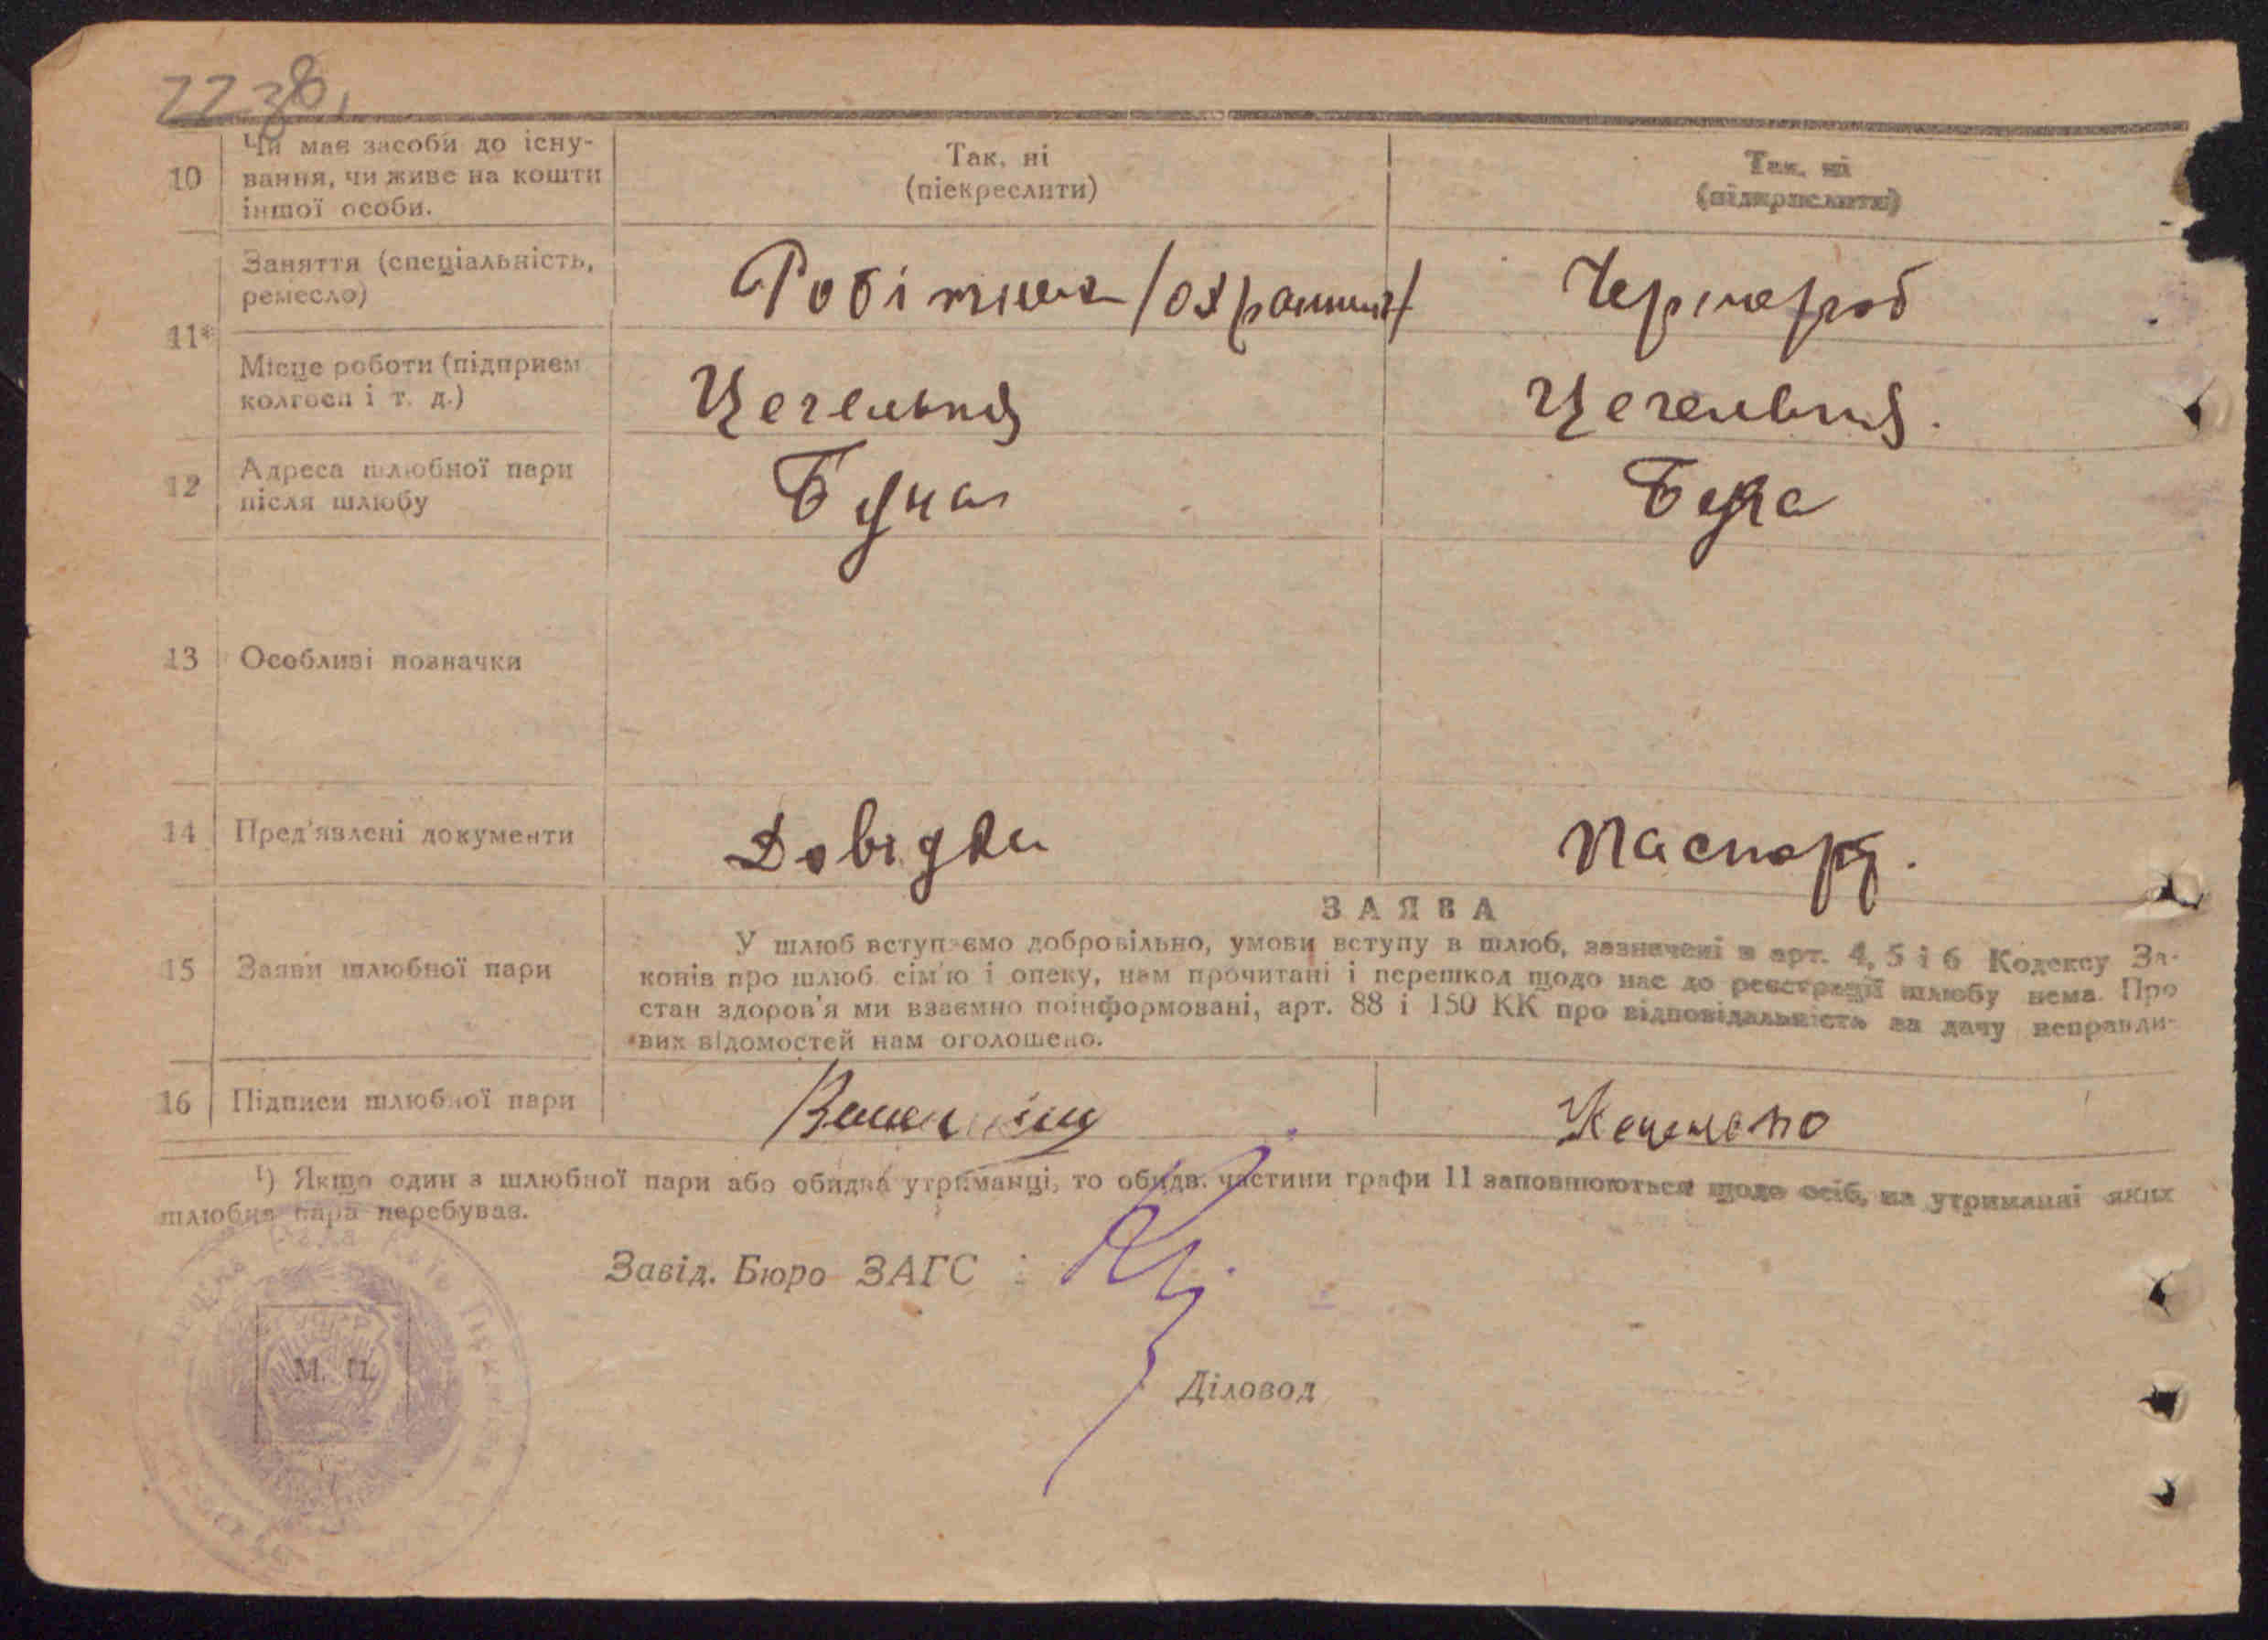 2238
10
Чи має засоби до існу-
вання, чи живе на кошти
іншої особи.
Так, ні
(піекреслити)
Так, ні
(підкреслити)
11*
Заняття (спеціальність,
ремесло)
Робітник /охранник/
Чорнороб
Місце роботи (підприєм
колгосп і т. д.)
Цегельня
Цегельня.
12
Адреса шлюбної пари
після шлюбу
Буча
Буча
13
Особливі позначки
14
Пред'явлені документи
Довідка
Паспорт.
15
Заяви шлюбної пари
ЗАЯВА
У шлюб вступаємо добровільно, умови вступу в шлюб, зазначені в арт. 4, 5 і 6 Кодексу За-
конів про шлюб сім'ю і опеку, нам прочитані і перешкод щодо нас до реєстрації шлюбу нема. Про
стан здоров'я ми взаємно поінформовані, арт. 88 і 150 КК про відповідальність за дачу неправди-
вих відомостей нам оголошено.
16
Підписи шлюбної пари
¹) Якщо один з шлюбної пари або обидва утриманці, то обидв. частини графи 11 заповнюються щодо осіб, на утриманні яких
шлюбна пара перебуває.
Завід. Бюро ЗАГС
М. П.
Діловод